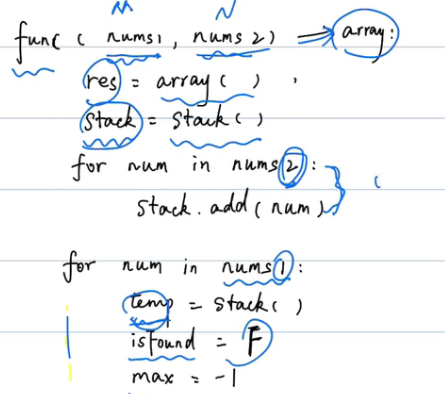 M N
func ( nums1, nums2) => array:
res = array( )
Stack = Stack( )
for num in nums2:
stack.add(num)
for num in nums1:
temp = Stack( )
isFound = F
max = -1